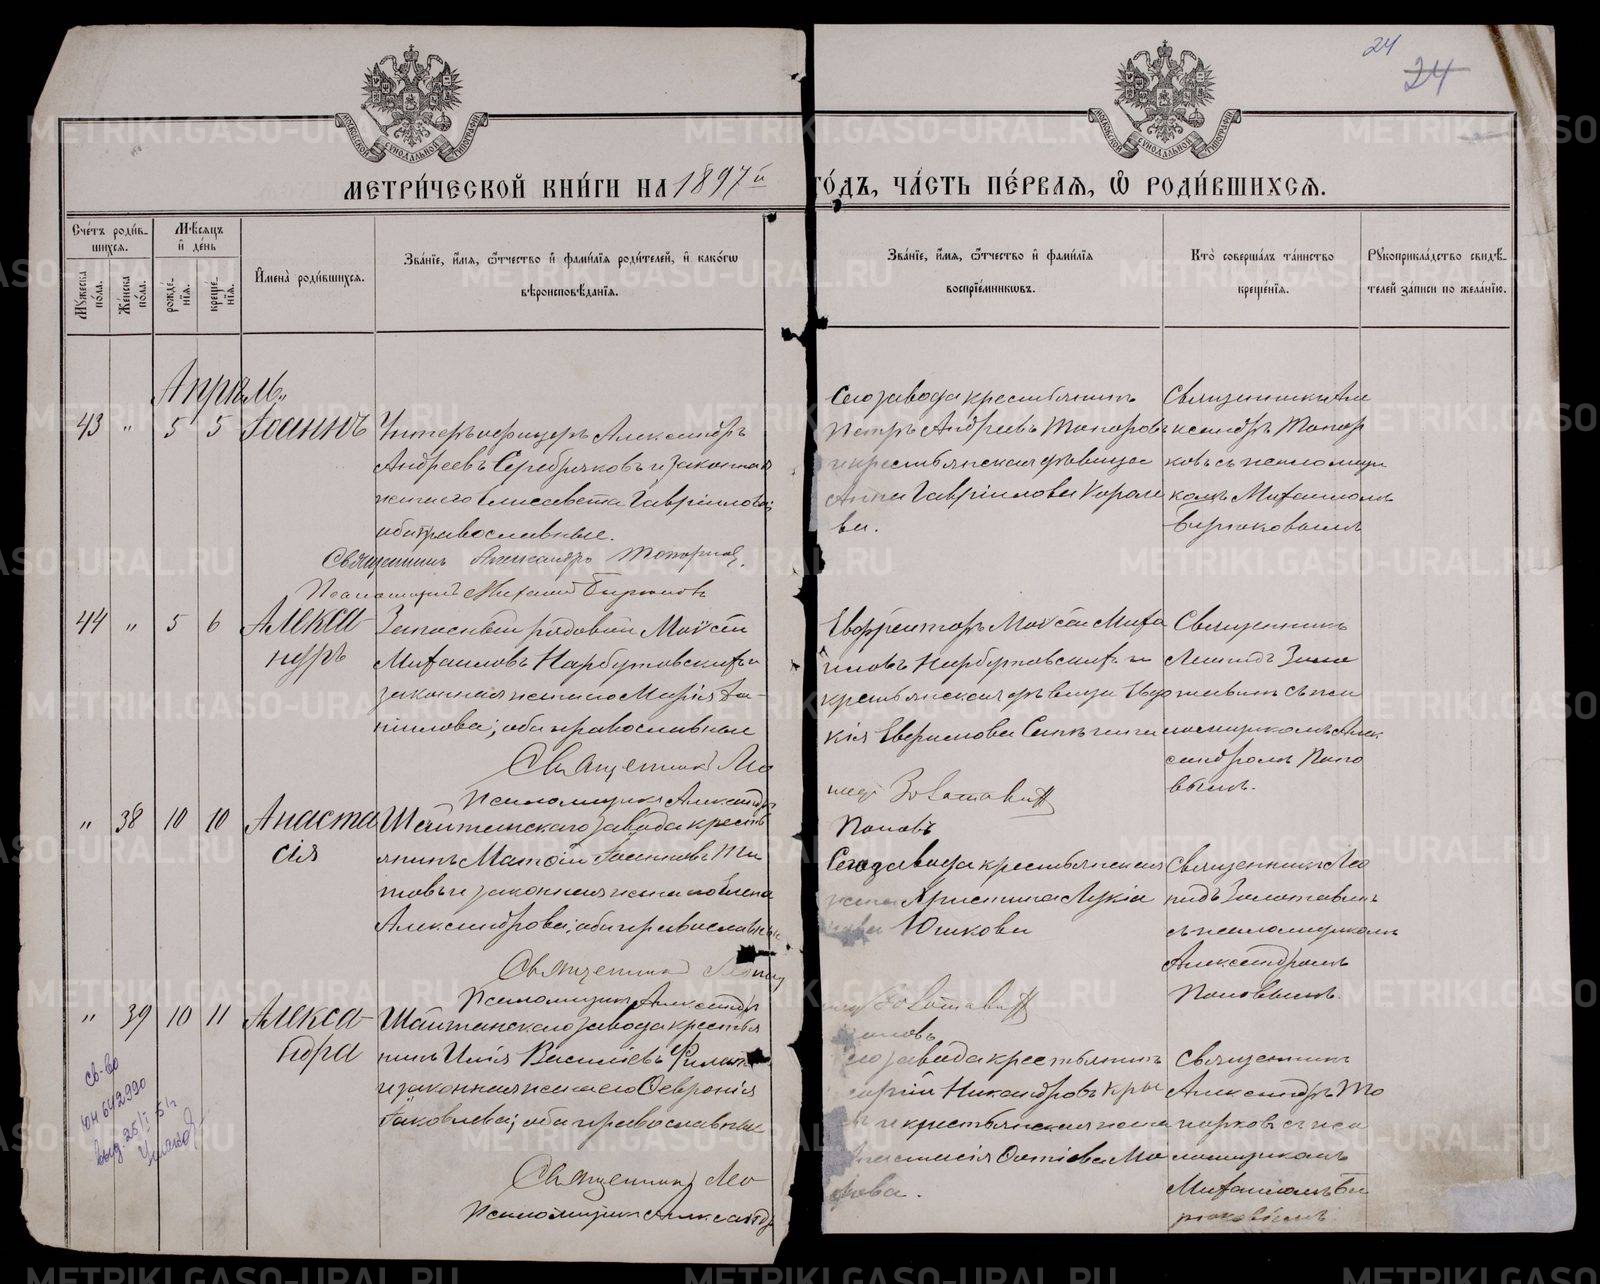 24
24
МЕТРИ́ЧЕСКОЙ КНИ́ГИ НА 1897й
ГО́ДЪ, ЧА́СТЬ ПЕ́РВАЯ, Ѿ РОДИ́ВШИХСЯ.
Сче́тъ роди́вшихся.
Му́жеска по́ла.
Же́нска по́ла.
Мѣ́сяцъ и де́нь
рожде́нїя.
креще́нїя.
И҆мена̀ роди́вшихся.
Зва́нїе, и҆́мя, ѻ҆́тчество и҆ фами́лїя роди́телей, и҆ како́гѡ
вѣроисповѣ́данїя.
Зва́нїе, и҆́мя, ѻ҆́тчество и҆ фами́лїя
воспрїе́мникѡвъ.
Кто̀ соверша́лъ та́инство
креще́нїя.
Рꙋкоприкла́дство свидѣ́телей за́писи по жела́нїю.
Апрѣль
43 " 5 5 Іоаннъ
Унтеръ офицеръ Александръ
Андреевъ Серебряковъ и законная
жена его Елисавета Гавріилова;
оба православные.
Священникъ Александръ Топорков.
Псаломщикъ Михаилъ Бирюковъ
Сего завода крестьянинъ
Петръ Андреевъ Топоровъ
и крестьянская дѣвица
Анна Гавріилова Короле
ва.
Священникъ Але
ксандръ Топор
ковъ съ псаломщи
комъ Михаиломъ
Бирюковымъ
44 " 5 6 Алекса
ндръ
Запасный рядовой Моѵсей
Михаиловъ Нарбутовскихъ и
законная жена его Марія Да-
ніилова; оба православные
Священникъ Лео
Псаломщикъ Александръ
Ефрейторъ Моѵсей Миха
иловъ Нарбутовскихъ и
крестьянская дѣвица Евдо
кія
нидъ Золотавинъ
Поповъ
Священникъ
Леонидъ Золо
тавинъ съ пса
ломщикомъ Алек
сандромъ Попо
вымъ.
" 38 10 10 Анаста
сія
Шайтанскаго завода кресть
янинъ Матѳій Іоанновъ Ти
товъ и законная жена его Елена
Александрова; оба православные
Священникъ Леонид
Псаломщикъ Александръ
Сего завода крестьянская
жена Христина Лукіа
нова Юшкова
нидъ Золотавинъ
Поповъ
Священникъ Лео
нидъ Золотавинъ
съ псаломщикомъ
Александромъ
Поповымъ.
" 39 10 11 Алекса
ндра
Шайтанскаго завода крестья
нинъ Илія Васильевъ
и законная жена его Ѳевронія
Іаковлева; оба православные
Священникъ Лео
Псаломщикъ Александръ
Сего завода крестьянинъ
Никандровъ
и крестьянская жена
Анастасія
Священникъ
Александръ То
порковъ съ пса
ломщикомъ
Михаиломъ Би
рюковымъ
св-во
выд. 25/I 51г
METRIKI.GASO-URAL.RU